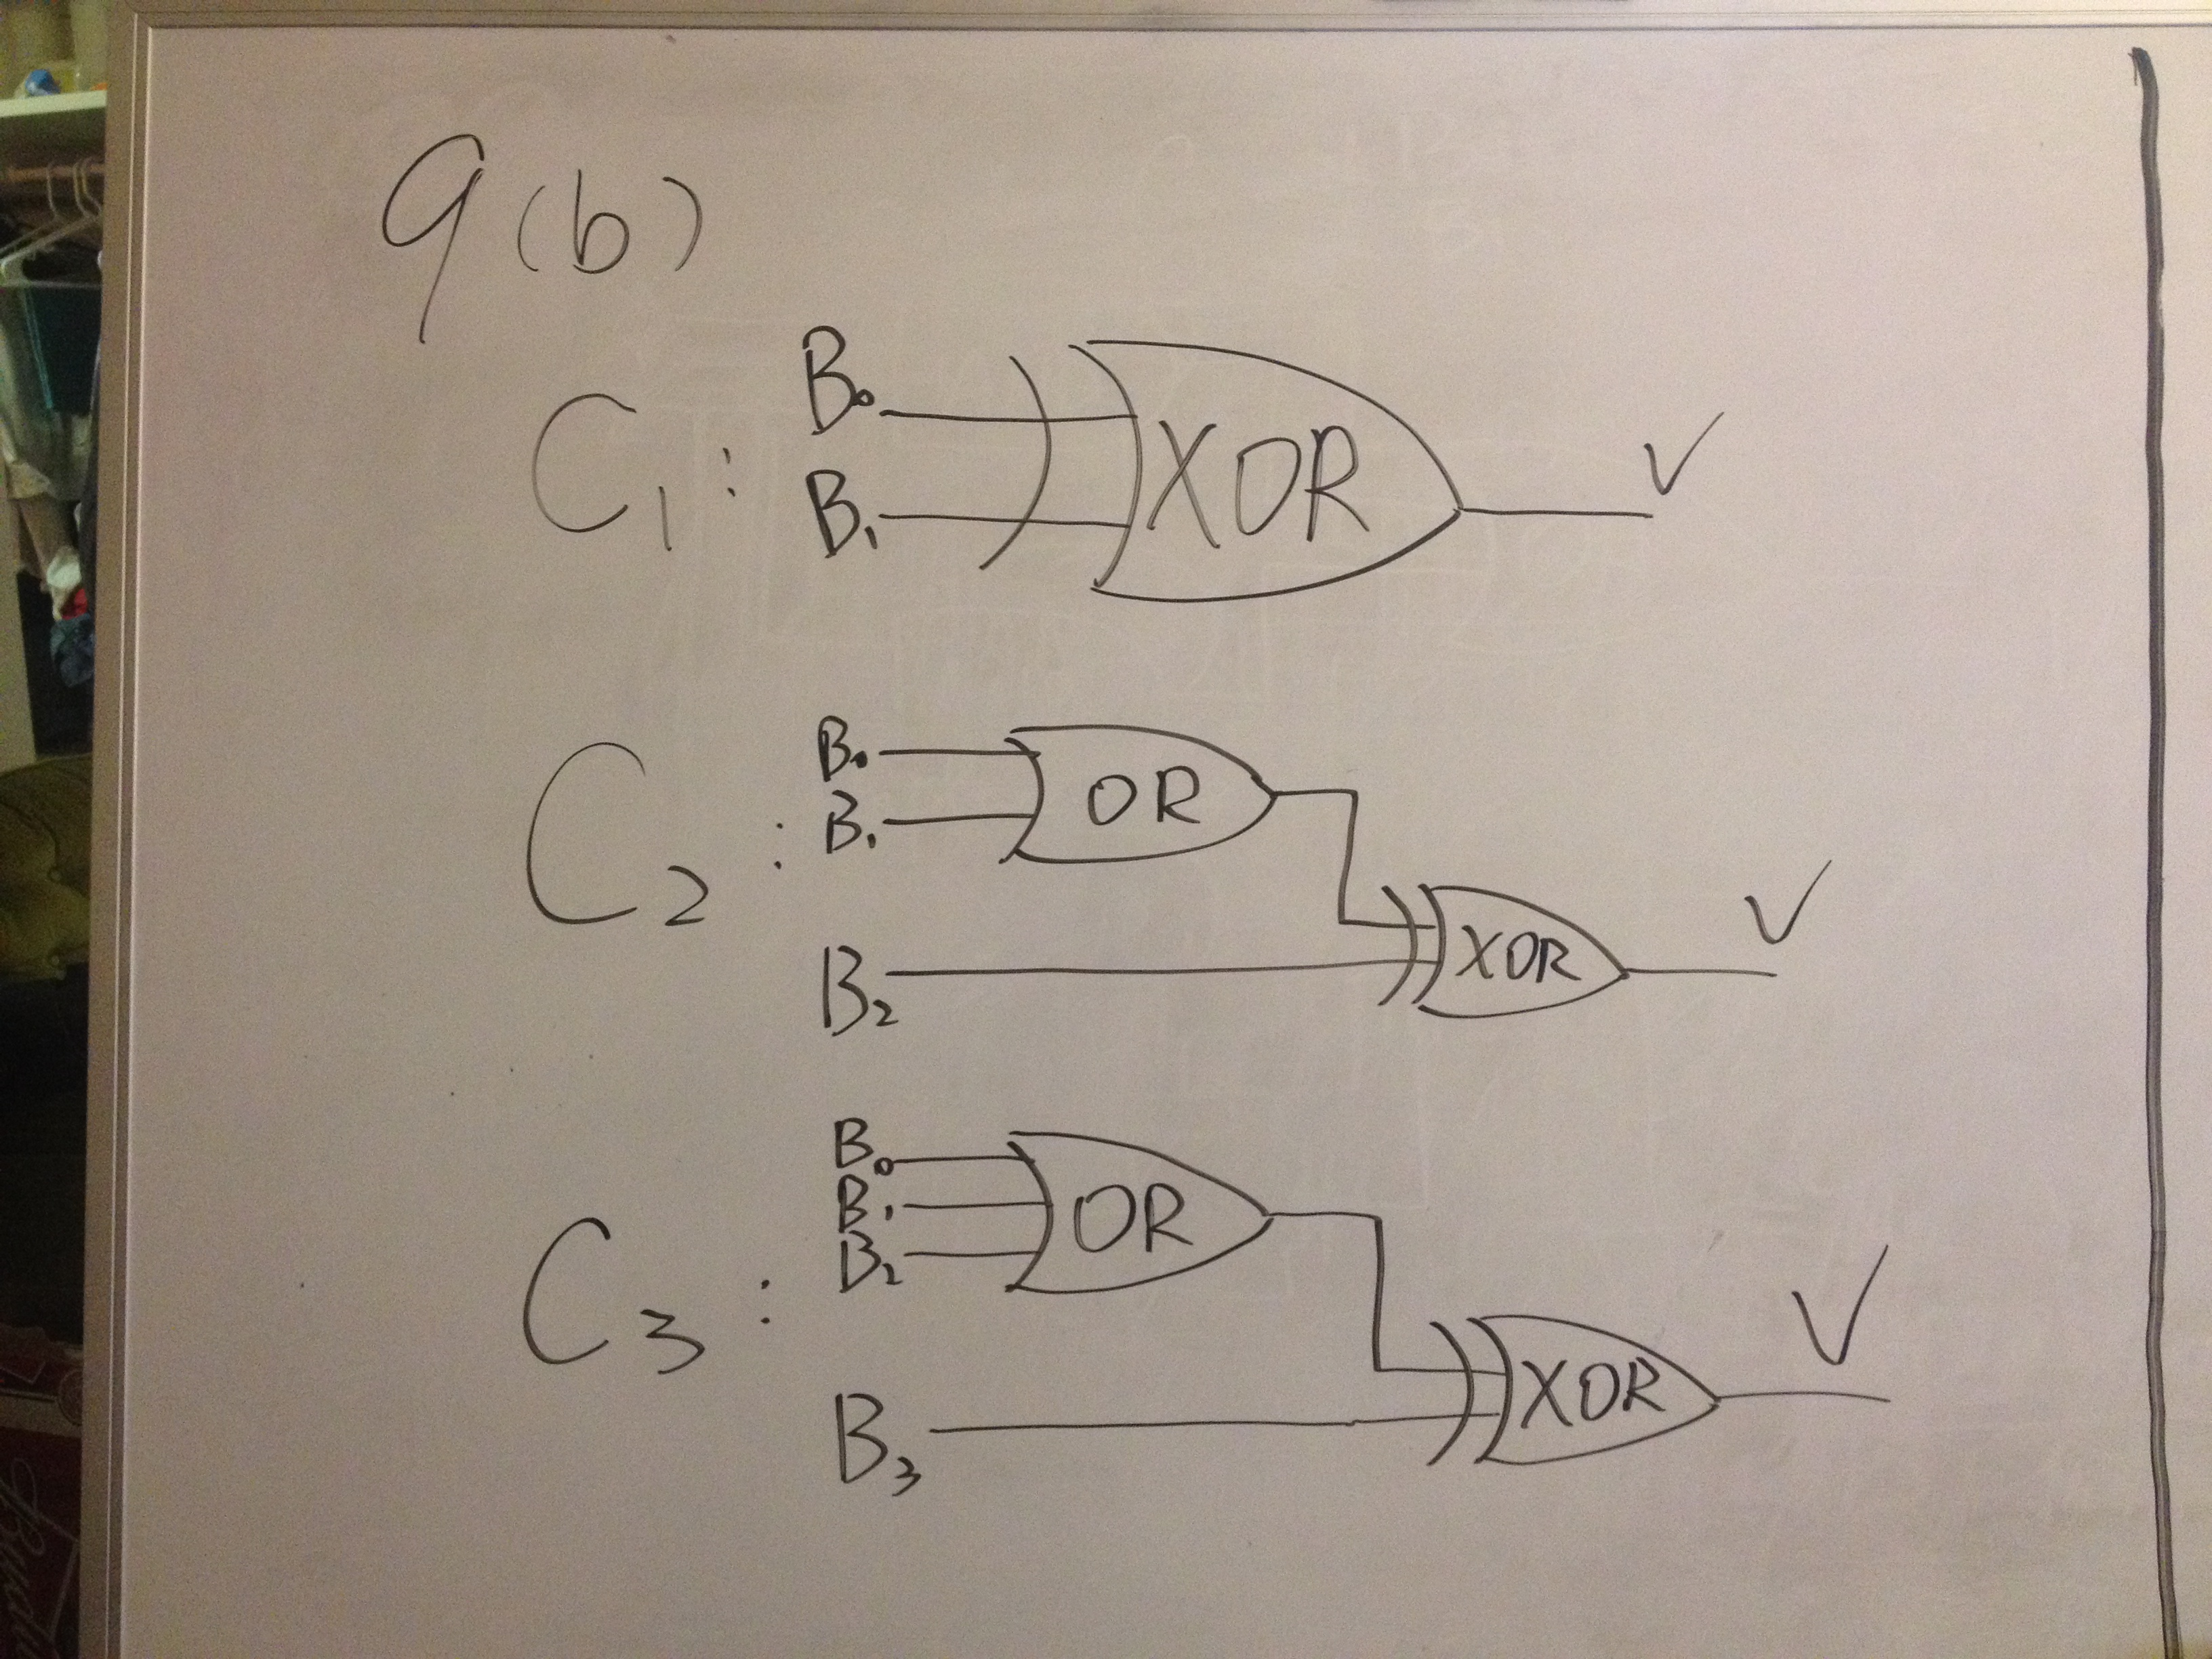 9(b)
C1:
B0
B1
XOR
C2:
B0
B1
OR
B2
XOR
C3:
B0
B1
B2
OR
B3
XOR